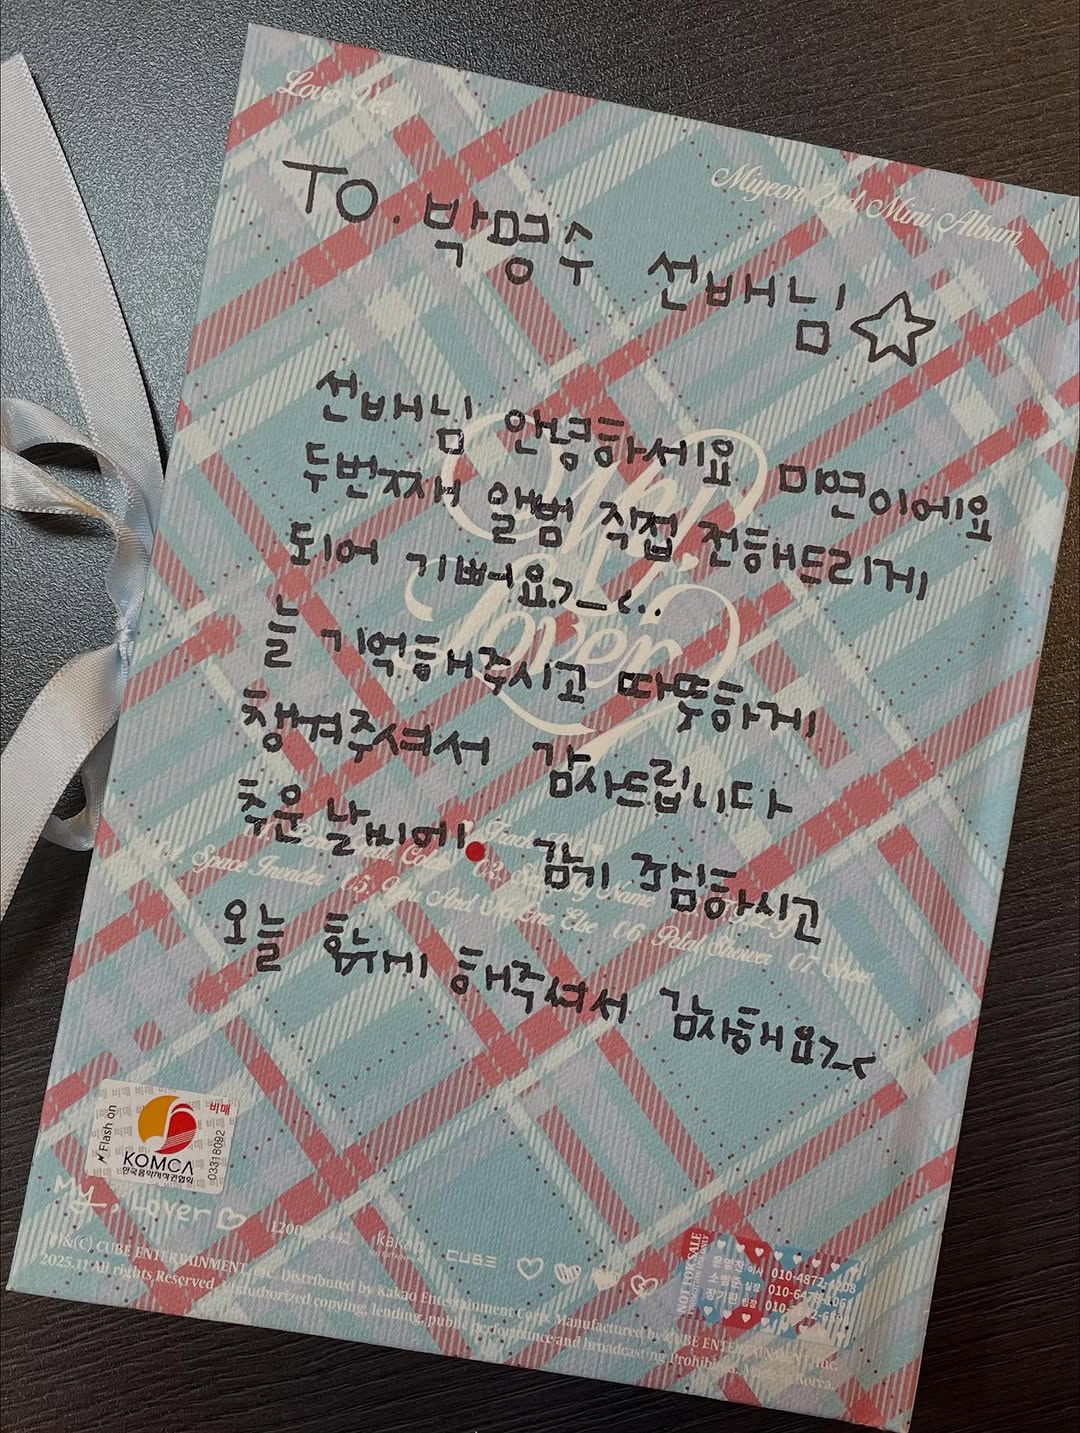 Lover Ver.
Miyeon 2nd Mini Album
TO. 박명수 선배님
선배님 안녕하세요 미연이에요
두번째 앨범 직접 전해드리게
되어 기뻐요>_<..
늘 기억해주시고 따뜻하게
챙겨주셔서 감사드립니다
추운 날씨에 감기 조심하시고
오늘 함께 해주셔서 감사해요>_<
My, Lover
Track List
Space Invader 05. You And No One Else 06. Petal Shower 07. Show
비매
Flash on
KOMCA
한국음악저작권협회
03318092
My, Lover
kakao
ENTERTAINMENT
CUBE
℗&(C) CUBE ENTERTAINMENT, Inc. Distributed by Kakao Entertainment Corp. Manufactured by CUBE ENTERTAINMENT Inc.
2025.11 All rights Reserved. Unauthorized copying, lending, public performance and broadcasting Prohibited. Korea.
NOT FOR SALE
이사
실장
팀장